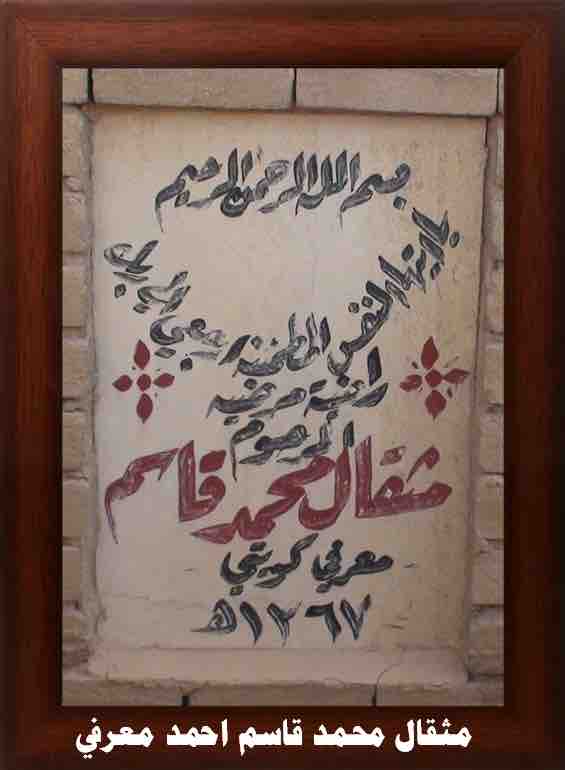 بسم الله الرحمن الرحيم
يا ايتها النفس المطمئنه ارجعي الى ربك
راضية مرضيه
المرحوم
مثقال محمد قاسم
معرفي كويتي
١٢٦٧ه
مثقال محمد قاسم احمد معرفي